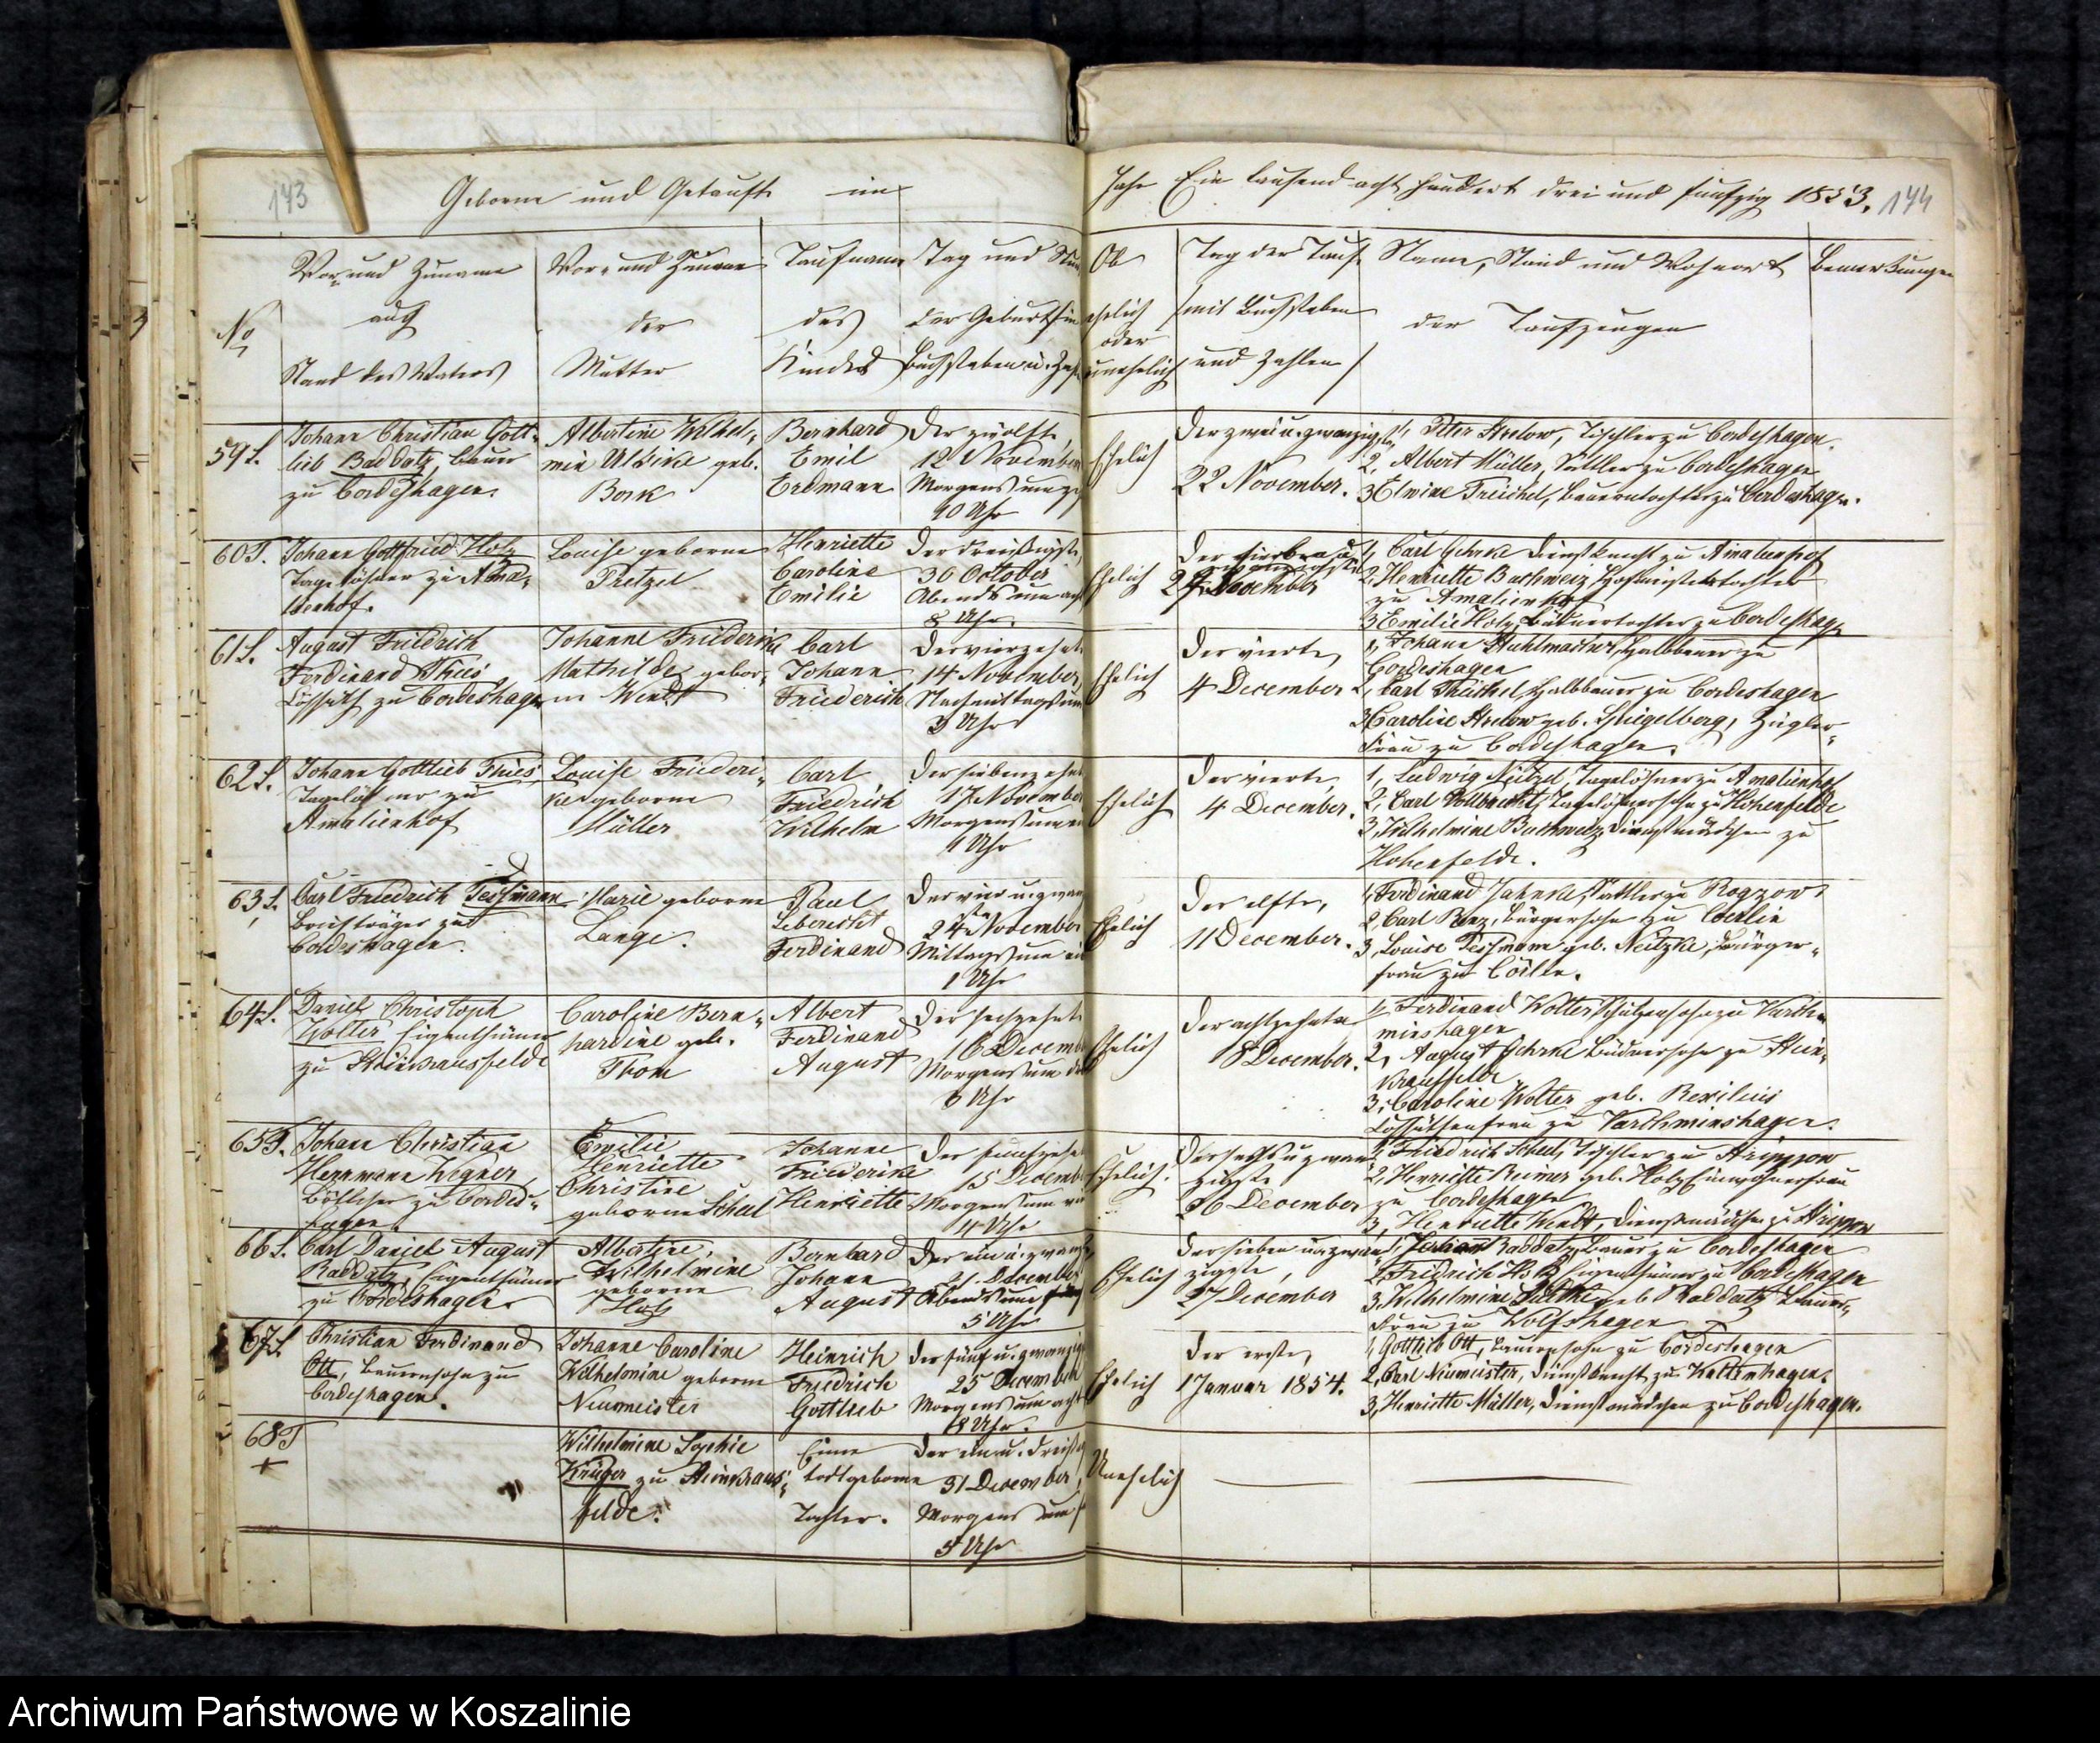 143
Geborne und Getaufte im
No
Vor- und Zuname
aus
Stand des Vaters
Vor- und Zuname
der
Mutter
Taufname
des
Kindes
Tag und
der Geburt
Buchstaben u.
59 S.
Johann Christian Gott-
lieb Baddatz, Bauer
zu Cordeshagen.
Albertine Wilhel-
mine Ulrike geb.
Bork
Bernhard
Emil
Erdmann
Der zwölfte,
12 November
Morgens um
10 Uhr
60 T.
Johann Gottfried Holz
Tagelöhner zu Ama-
lienhof.
Louise geborne
Pretzel
Henriette
Caroline
Emilie
Der dreißigste,
30 October
Abends um
8 Uhr.
61 S.
August Friedrich
Ferdinand Thies
Cossäth zu Cordeshagen
Johanne Friederike
Mathilde gebor-
ne Wendt
Carl
Johann
Friederich
Der vierzehnte
14 November,
Nachmittags um
3 Uhr
62 S.
Johann Gottlieb Thies
Tagelöhner zu
Amalienhof
Louise Friederi-
ke geborne
Müller
Carl
Friedrich
Wilhelm
Der siebenzehnte
17 November
Morgens um
1 Uhr
63 S.
Carl Friedrich Tessmann
Briefträger zu
Cordeshagen.
Marie geborne
Lange.
Paul
Leberecht
Ferdinand
Der vier u. zwan
24 November
Mittags um ein
1 Uhr
64 S.
Daniel Christoph
Wolter Eigenthümer
zu Steinkrausfelde
Caroline Bern-
hardine geb.
Thom
Albert
Ferdinand
August
Der sechzehnte
16 December
Morgens um
3 Uhr
65 T.
Johann Christian
Herrmann Wegner
zu Cordes-
hagen.
Emilie
Henriette
Christine
geborne Scheel
Johanne
Friederike
Henriette
Der fünfzehnte
15 December
Morgens um
4 Uhr
66 S.
Carl Daniel August
Raddatz, Eigenthümer
zu Cordeshagen.
Albertine,
Wilhelmine
geborne
Holz
Bernhard
Johann
August
Der ein u. zwanz
21 December
Abends um fünf
5 Uhr
67 S.
Christian Ferdinand
Ott, Bauernsohn zu
Cordeshagen.
Johanne Caroline
Wilhelmine geborne
Neumeister
Heinrich
Friedrich
Gottlieb
Der fünf u. zwanzig
25 December
Morgens um acht
8 Uhr.
68 T
+
Wilhelmine Sophie
Krüger zu Steinkraus-
felde.
Eine
todtgeborne
Tochter.
Der ein u. dreißig
31 December,
Morgens um
5 Uhr
Jahr Ein tausend acht hundert drei und fünfzig 1853. 144
Ob
ehelich
oder
unehelich
Tag der Taufe
/mit Buchstaben
und Zahlen/
Name, Stand und Wohnort
der Taufzeugen
Bemerkungen
Ehelich
Der zwei u. zwanzigste
22 November.
1, Peter Strelow, Tischler zu Cordeshagen.
2, Albert Müller, Sattler zu Cordeshagen
3 Elwine Treichel, Bauerntochter zu Cordeshagen.
Ehelich
Der
27 November
1, Carl Gehrke Dienstknecht zu Amalienhof
2, Henriette Buchweiz, Hofmeisterstochter
zu Amalienhof
3 Emilie Holz, Büdnertochter zu Cordeshagen
Ehelich
Der vierte,
4 December
1, Johann Stuhlmacher, Halbbauer zu
Cordeshagen
2, Carl Treichel, Halbbauer zu Cordeshagen
3 Caroline Strelow geb. Spiegelberg, Ziegler-
frau zu Cordeshagen.
Ehelich
Der vierte,
4 December.
1, Ludwig Neitzel, Tagelöhner zu Amalienhof
2, Carl Vollbrecht, Tagelöhnersohn zu Hohenfelde
3, Wilhelmine Buchweiz, Dienstmädchen zu
Hohenfelde.
Ehelich
Der elfte,
11 December.
1, Ferdinand Jahnke, Sattler zu Rogzow
2, Carl Benz, Bürgersohn zu Coerlin
3, Louise Tessmann geb. Neitzke, Bürger-
frau zu Cörlin.
Ehelich
Der achtzehnte
18 December.
1, Ferdinand Wolter Schulzensohn zu Varch-
minshagen
2, August Gehrke Büdnersohn zu Stein-
krausfelde
3, Caroline Wolter geb. Rexilius
Cossäthenfrau zu Varchminshagen.
Ehelich.
Der sechs u zwan-
zigste
26 December
1, Friedrich Scheel, Tischler zu Strippow
2, Henriette Reimer geb. Holz Einwohnerfrau
zu Cordeshagen
3, Henriette Wendt, Dienstmädchen zu Strippow
Ehelich
Der sieben u. zwan-
zigste,
27 December
1, Raddatz, Bauer zu Cordeshagen
2, Fridrich Eigenthümer zu Cordeshagen
3, Wilhelmine geb. Raddatz Bauer-
frau zu Wolfshagen
Ehelich
Der erste,
1 Januar 1854.
1, Gottlieb Ott, Bauernsohn zu Cordeshagen
2, Carl Neumeister, Dienstknecht zu Kaltenhagen.
3, Henriette Müller, Dienstmädchen zu Cordeshagen.
Unehelich
Archiwum Państwowe w Koszalinie